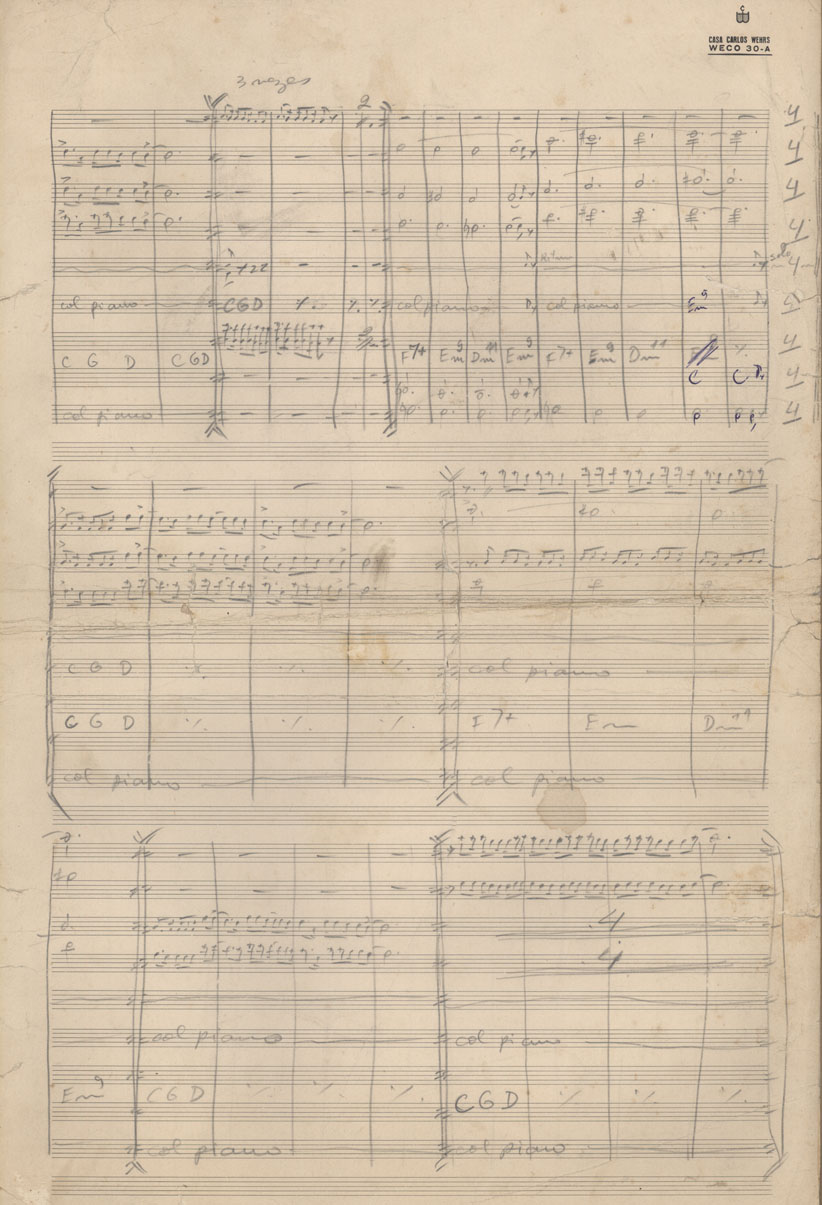 CASA CARLOS WEHRS
WECO 30-A
3 vezes
2
4
4
4
4
4
col piano C G D ٪ ٪ ٪ col piano col piano Em9
4
C G D C G D F7+ Em9 Dm11 Em9 F7+ Em9 Dm11 ٪
4
C C
col piano
4
C G D ٪ ٪ ٪ col piano
C G D ٪ ٪ ٪ F7+ Em Dm11
col piano col piano
4
4
col piano col piano
Em9 C G D ٪ ٪ C G D ٪ ٪ ٪
col piano col piano